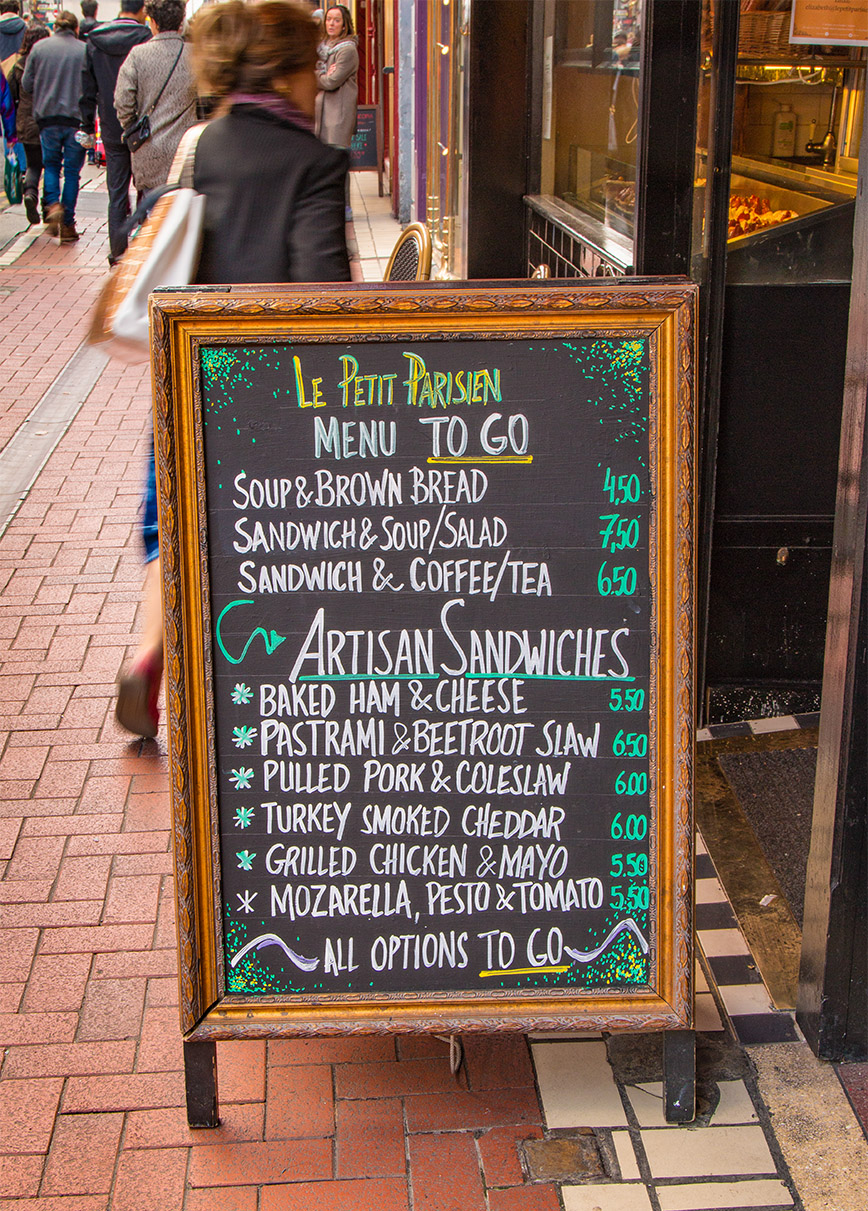 LE PETIT PARISIEN
MENU TO GO
SOUP & BROWN BREAD 4,50
SANDWICH & SOUP/SALAD 7,50
SANDWICH & COFFEE/TEA 6.50
ARTISAN SANDWICHES
* BAKED HAM & CHEESE 5.50
* PASTRAMI & BEETROOT SLAW 6.50
* PULLED PORK & COLESLAW 6.00
* TURKEY SMOKED CHEDDAR 6.00
* GRILLED CHICKEN & MAYO 5.50
* MOZARELLA, PESTO & TOMATO 5.50
ALL OPTIONS TO GO